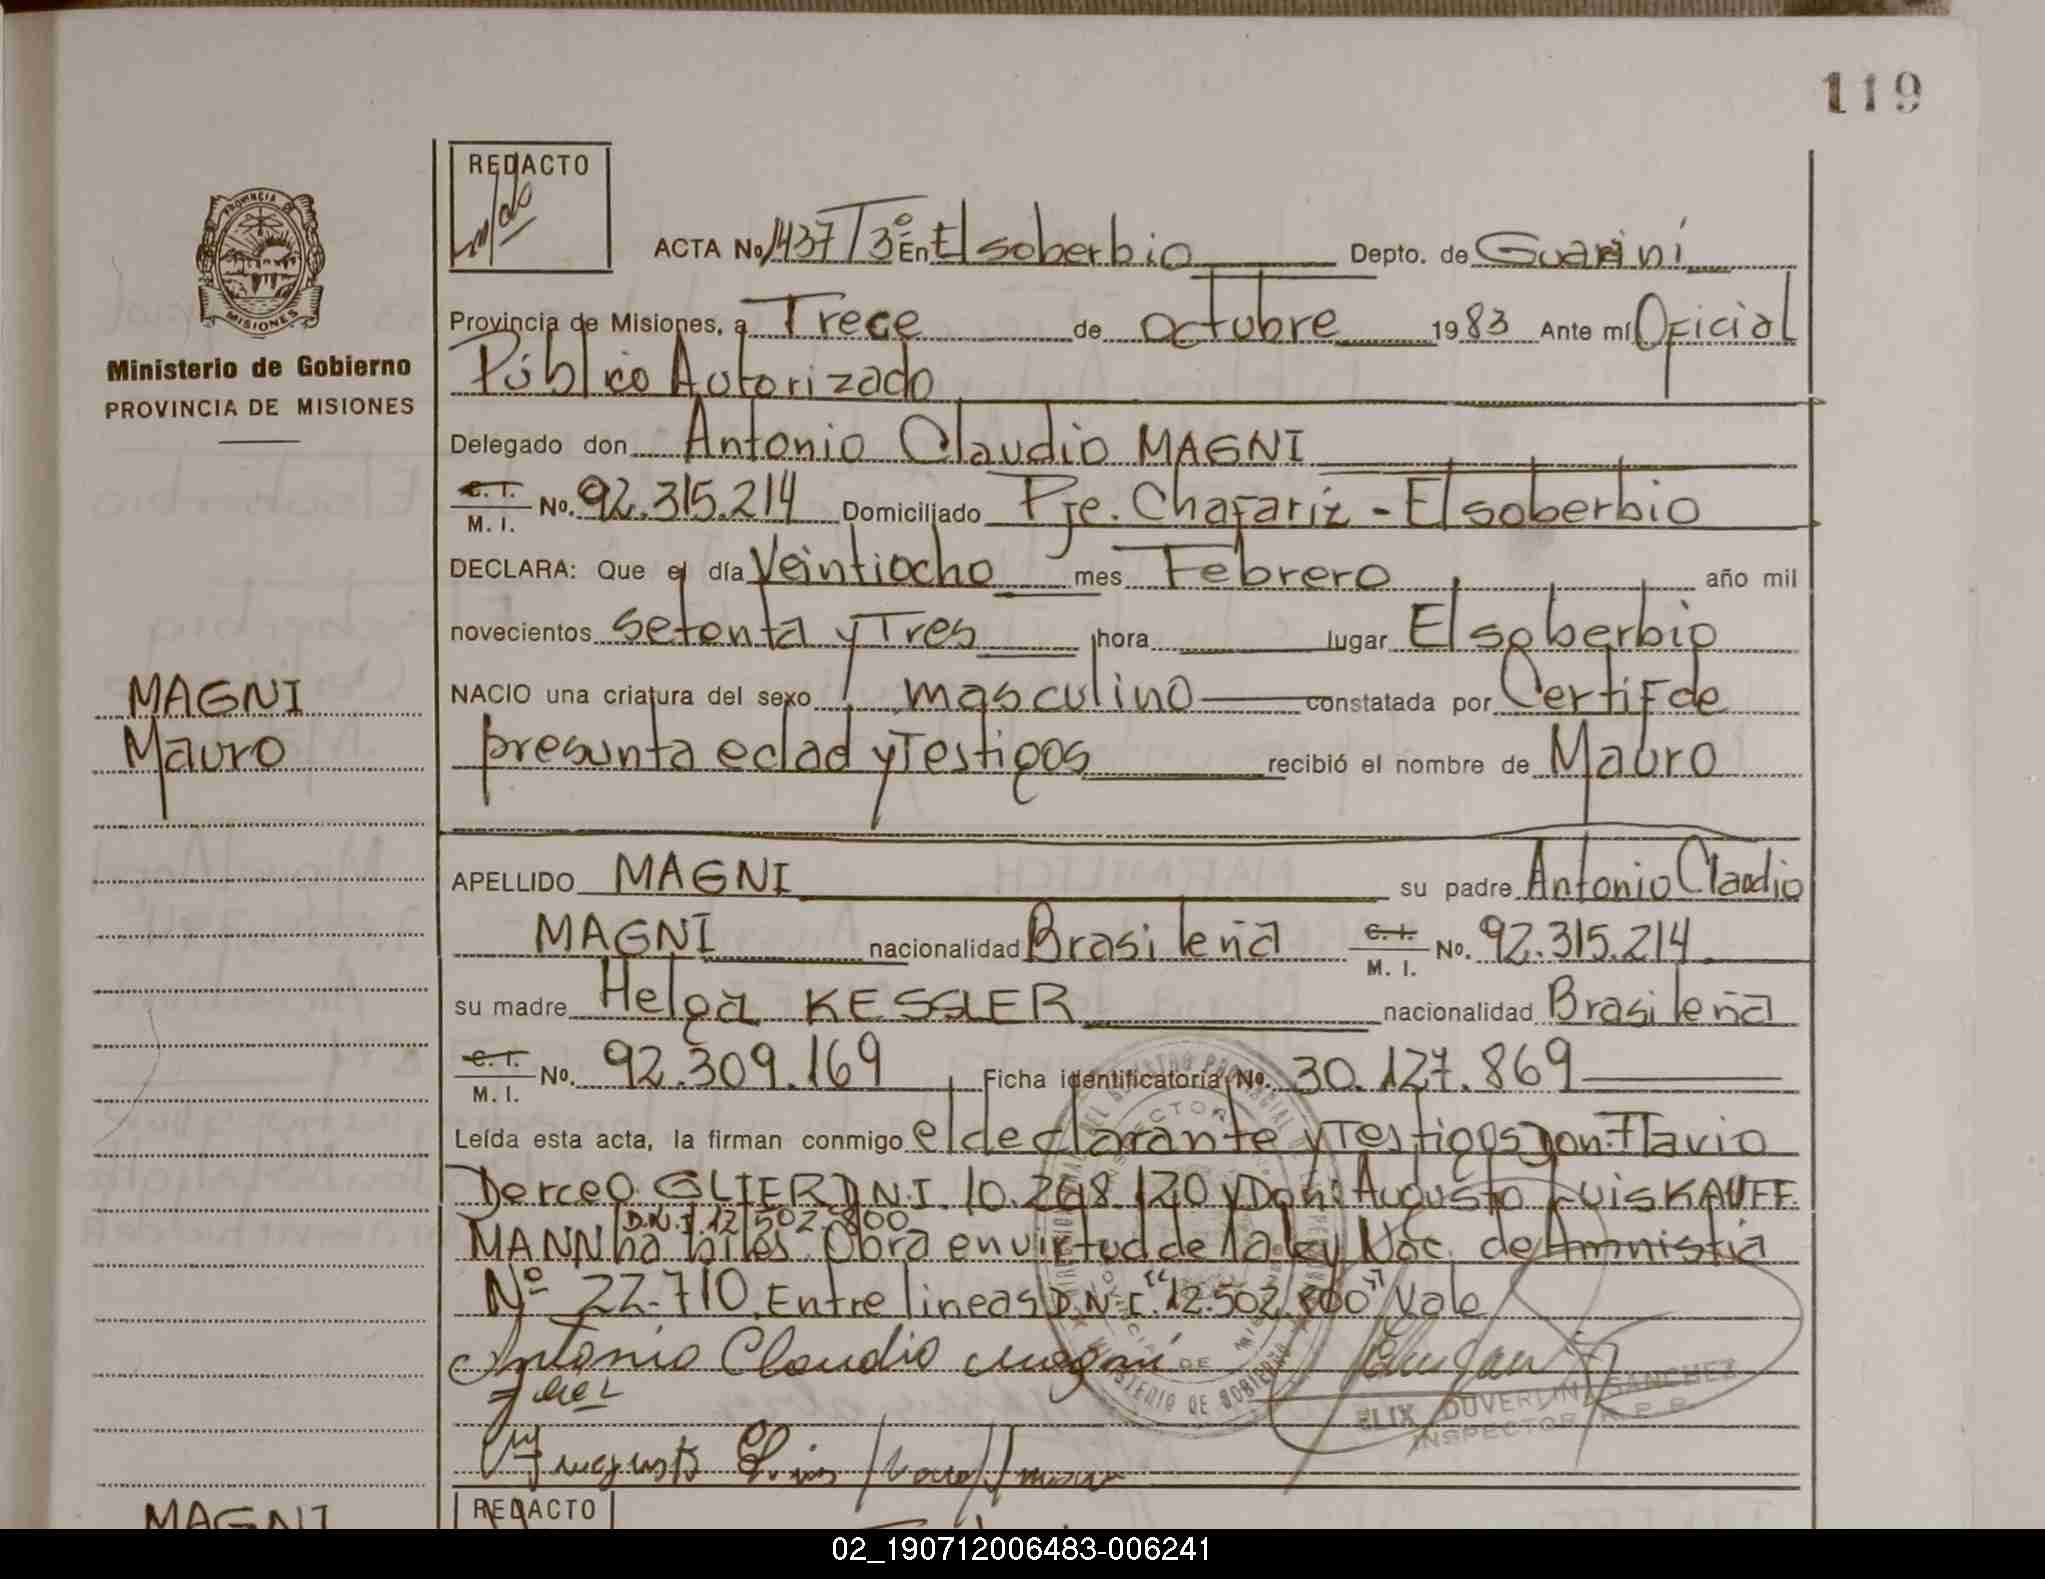 119
REDACTO
PROVINCIA
MISIONES
Ministerio de Gobierno
PROVINCIA DE MISIONES
ACTA No. 1437 T3º En El soberbio Depto. de Guarini
Provincia de Misiones, a Trece de octubre 1983 Ante mí Oficial
Público Autorizado
Delegado don Antonio Claudio MAGNI
C. I. M. I. No. 92.315.214 Domiciliado Pje. Chafariz - El soberbio
DECLARA: Que el día Veintiocho mes Febrero año mil
novecientos setenta y Tres hora lugar El soberbio
MAGNI
Mauro
NACIO una criatura del sexo masculino constatada por Certif de
presunta edad y Testigos recibió el nombre de Mauro
APELLIDO MAGNI su padre Antonio Claudio
MAGNI nacionalidad Brasileña C. I. M. I. No. 92.315.214
su madre Helga KESSLER nacionalidad Brasileña
C. I. M. I. No. 92.309.169 Ficha identificatoria No. 30.127.869
Leída esta acta, la firman conmigo el declarante y Testigos Don: Flavio
Derceo GLIER D.N.I. 10.268.120 y Don: Augusto Luis KAUFF
D.N.I. 12.502.800
MANN ha biles Obra en virtud de la ley Nac. de Amnistia
Nº 22.710. Entre lineas D.N.I. "12.502.800" Vale
Antonio Claudio Magni
Augusto Luis
ELIX DUVERLINA SANCHEZ
INSPECTOR R.P.P.
MAGNI
REDACTO
02_190712006483-006241